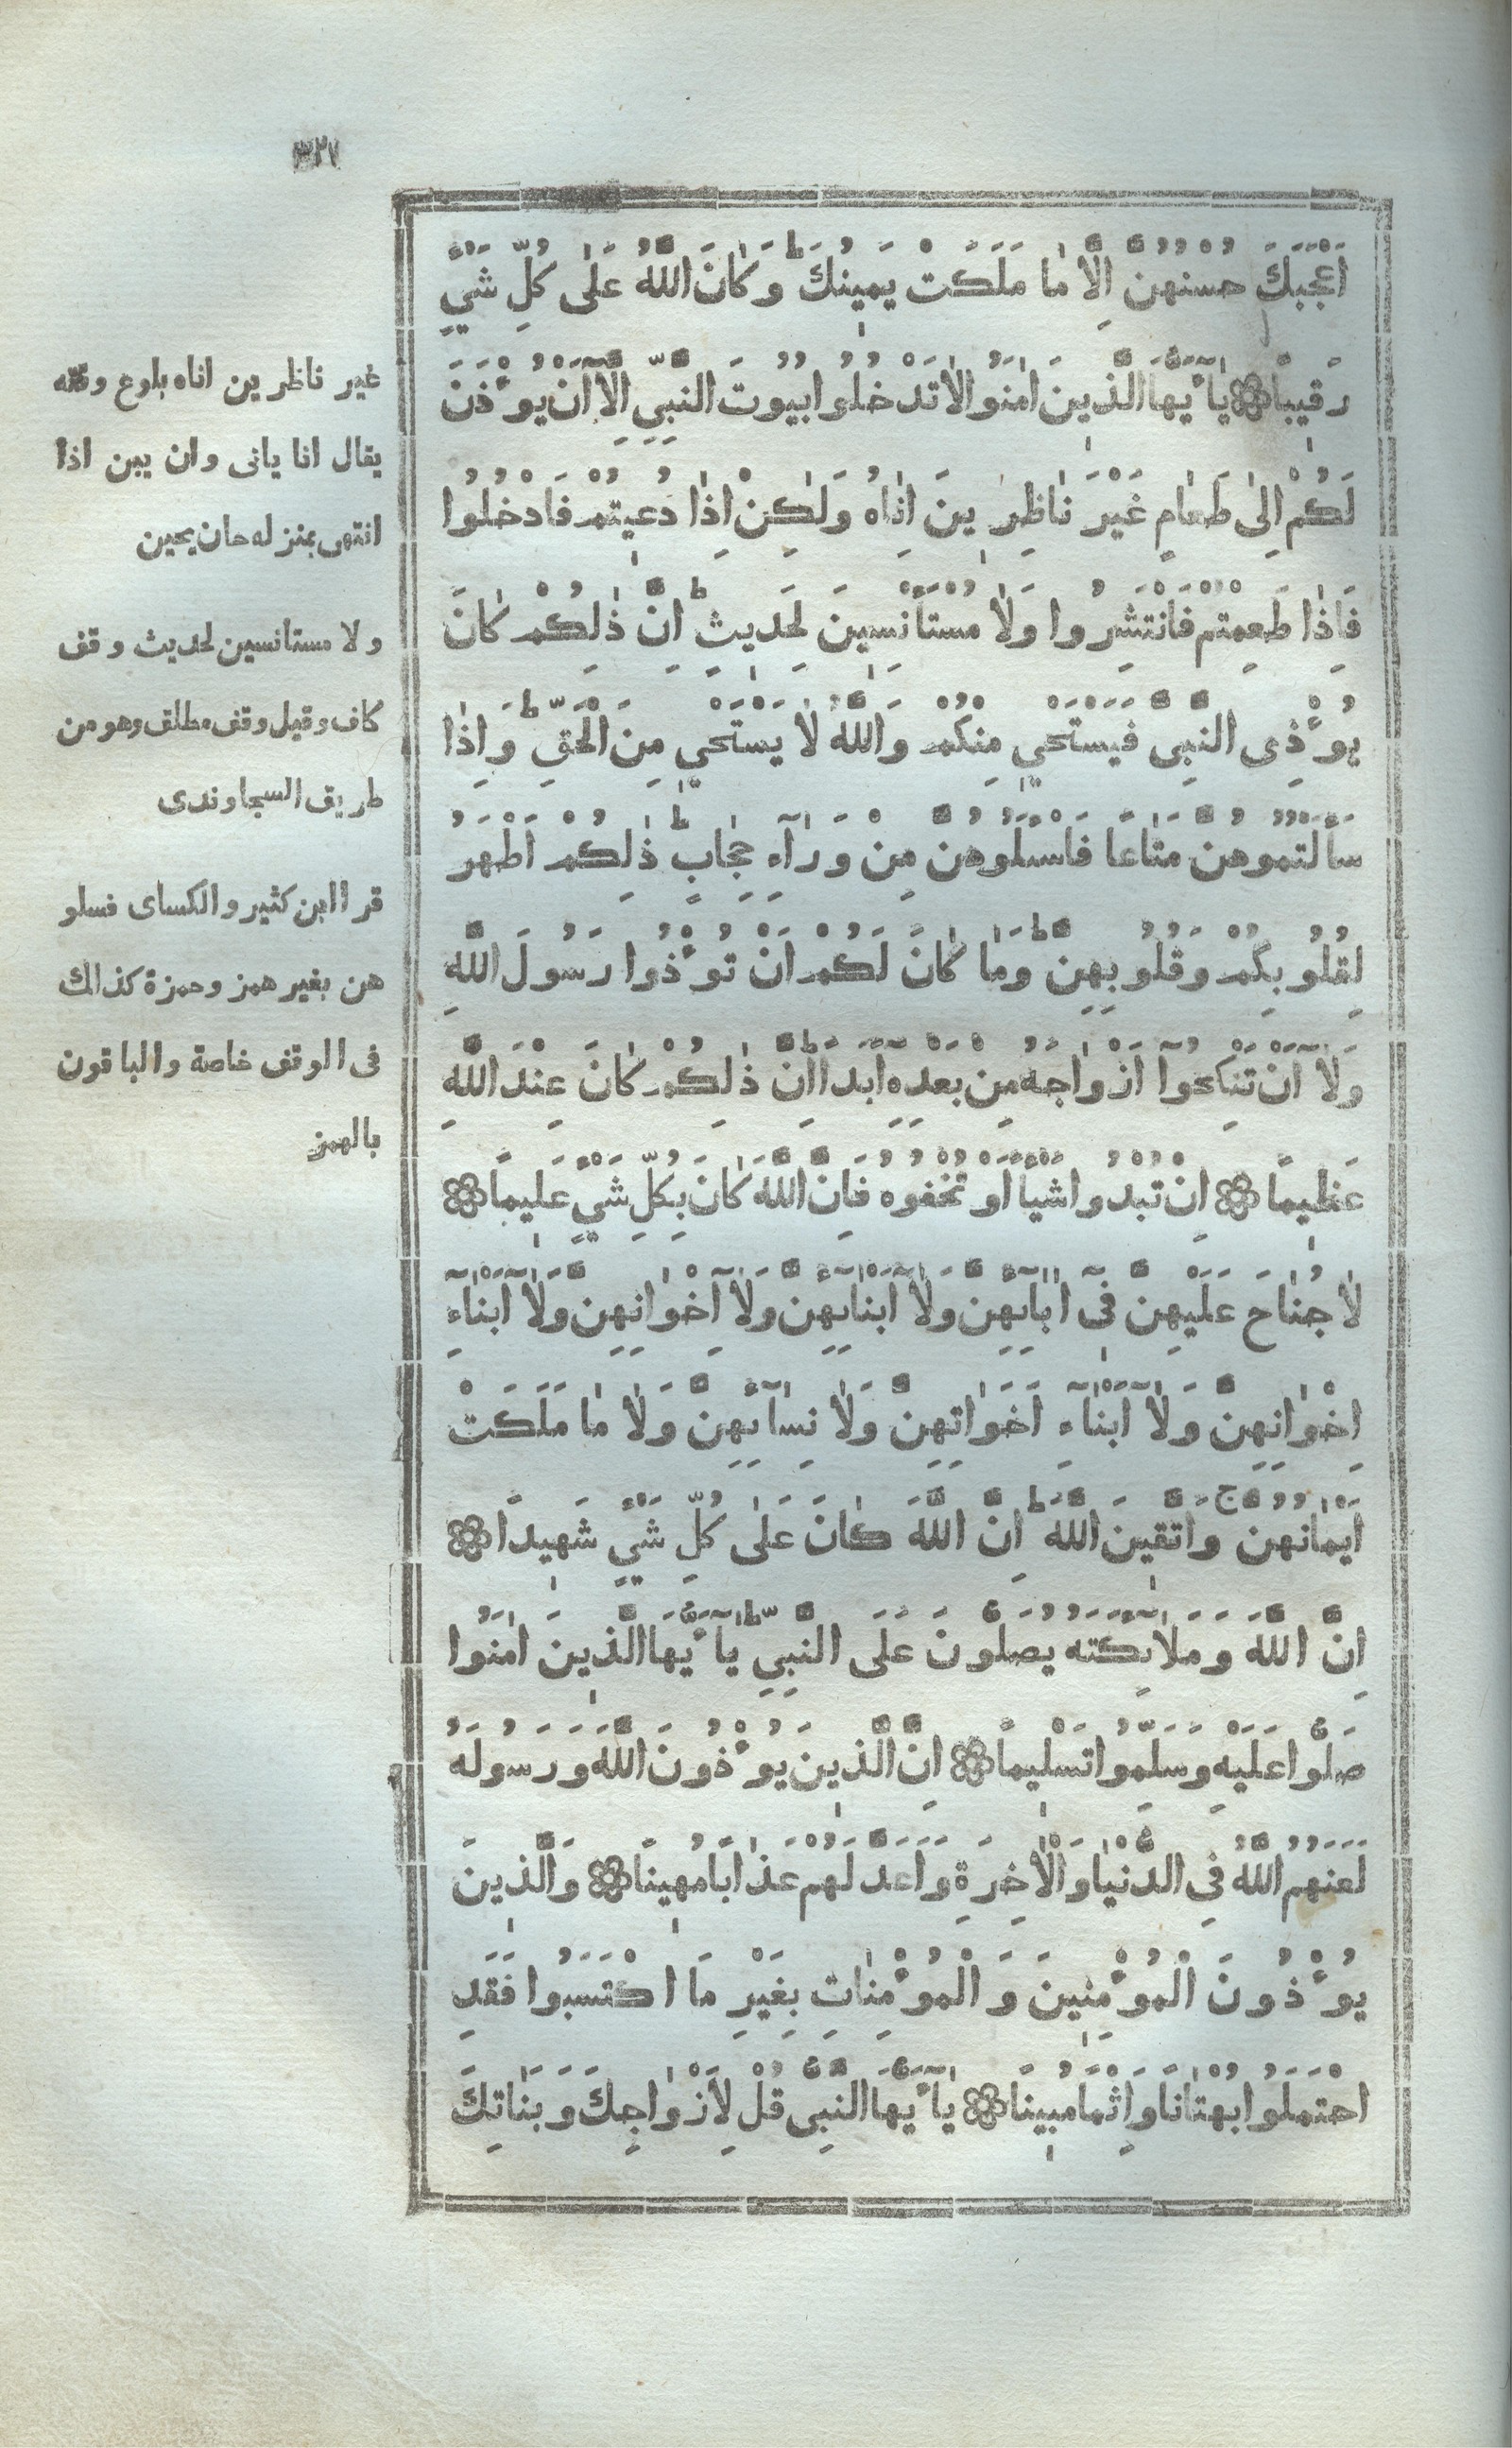 ٣٢٧
اَعْجَبَكَ حُسْنُهُنَّ اِلَّا مَا مَلَكَتْ يَمِينُكَ ؕ وَكَانَ اللّٰهُ عَلٰى كُلِّ شَيْءٍ
رَقِيبًا ۞ يَآ اَيُّهَا الَّذِينَ اٰمَنُوا لَا تَدْخُلُوا بُيُوتَ النَّبِيِّ اِلَّآ اَنْ يُؤْذَنَ
لَكُمْ اِلٰى طَعَامٍ غَيْرَ نَاظِرِينَ اِنَاهُ وَلٰكِنْ اِذَا دُعِيتُمْ فَادْخُلُوا
فَاِذَا طَعِمْتُمْ فَانْتَشِرُوا وَلَا مُسْتَأْنِسِينَ لِحَدِيثٍ ؕ اِنَّ ذٰلِكُمْ كَانَ
يُؤْذِى النَّبِىَّ فَيَسْتَحْيِ مِنْكُمْ وَاللّٰهُ لَا يَسْتَحْيِ مِنَ الْحَقِّ ؕ وَاِذَا
سَأَلْتُمُوهُنَّ مَتَاعًا فَاسْـَٔلُوهُنَّ مِنْ وَرَآءِ حِجَابٍ ؕ ذٰلِكُمْ اَطْهَرُ
لِقُلُوبِكُمْ وَقُلُوبِهِنَّ ؕ وَمَا كَانَ لَكُمْ اَنْ تُؤْذُوا رَسُولَ اللّٰهِ
وَلَآ اَنْ تَنْكِحُوآ اَزْوَاجَهُ مِنْ بَعْدِهِ اَبَدًا ؕ اِنَّ ذٰلِكُمْ كَانَ عِنْدَ اللّٰهِ
عَظِيمًا ۞ اِنْ تُبْدُوا شَيْـًٔا اَوْ تُخْفُوهُ فَاِنَّ اللّٰهَ كَانَ بِكُلِّ شَيْءٍ عَلِيمًا ۞
لَا جُنَاحَ عَلَيْهِنَّ فِىٓ اٰبَآئِهِنَّ وَلَآ اَبْنَآئِهِنَّ وَلَآ اِخْوَانِهِنَّ وَلَآ اَبْنَآءِ
اِخْوَانِهِنَّ وَلَآ اَبْنَآءِ اَخَوَاتِهِنَّ وَلَا نِسَآئِهِنَّ وَلَا مَا مَلَكَتْ
اَيْمَانُهُنَّ ۚ وَاتَّقِينَ اللّٰهَ ؕ اِنَّ اللّٰهَ كَانَ عَلٰى كُلِّ شَيْءٍ شَهِيدًا ۞
اِنَّ اللّٰهَ وَمَلَآئِكَتَهُ يُصَلُّونَ عَلَى النَّبِيِّ ؕ يَآ اَيُّهَا الَّذِينَ اٰمَنُوا
صَلُّوا عَلَيْهِ وَسَلِّمُوا تَسْلِيمًا ۞ اِنَّ الَّذِينَ يُؤْذُونَ اللّٰهَ وَرَسُولَهُ
لَعَنَهُمُ اللّٰهُ فِى الدُّنْيَا وَالْاٰخِرَةِ وَاَعَدَّ لَهُمْ عَذَابًا مُهِينًا ۞ وَالَّذِينَ
يُؤْذُونَ الْمُؤْمِنِينَ وَالْمُؤْمِنَاتِ بِغَيْرِ مَا اكْتَسَبُوا فَقَدِ
احْتَمَلُوا بُهْتَانًا وَاِثْمًا مُبِينًا ۞ يَآ اَيُّهَا النَّبِىُّ قُلْ لِاَزْوَاجِكَ وَبَنَاتِكَ
غير ناظرين اناه بلوغ وقته
يقال انا يانى وان يبن اذا
انتهى بمنزله حان يحين
ولا مستانسين لحديث وقف
كاف وقيل وقف مطلق وهو من
طريق السجاوندى
قرا ابن كثير والكساى فسلو
هن بغير همز وحمزة كذالك
فى الوقف خاصة والباقون
بالهمز